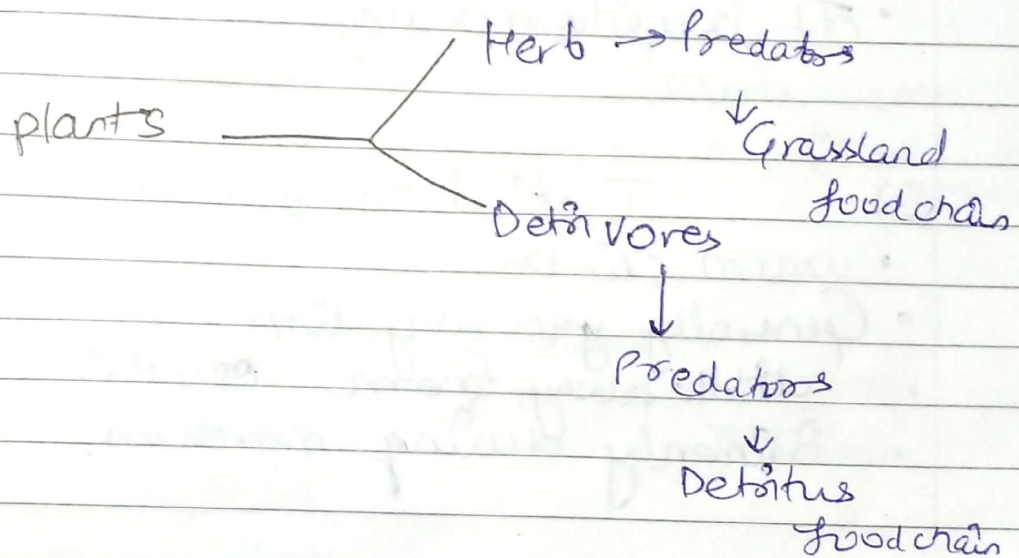 Herb → Predators
plants
↓ Grassland
food chain
Detrivores
↓
Predators
↓
Detritus
food chain